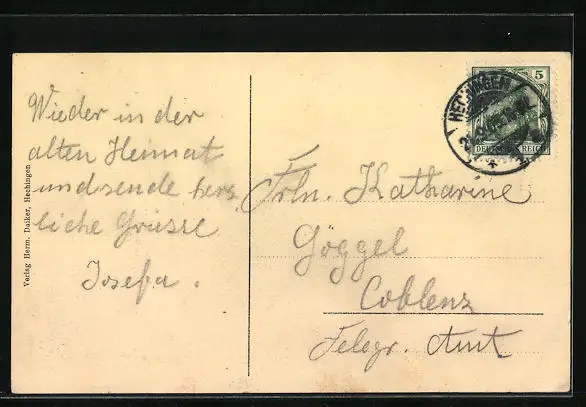 Wieder in der
alten Heimat
und sende herz
liche Grüsse
Josefa.
Frln. Katharine
Göggel
Coblenz
Telegr. Amt
Verlag Herm. Daiker, Hechingen
HECHINGEN
5
DEUTSCHES REICH